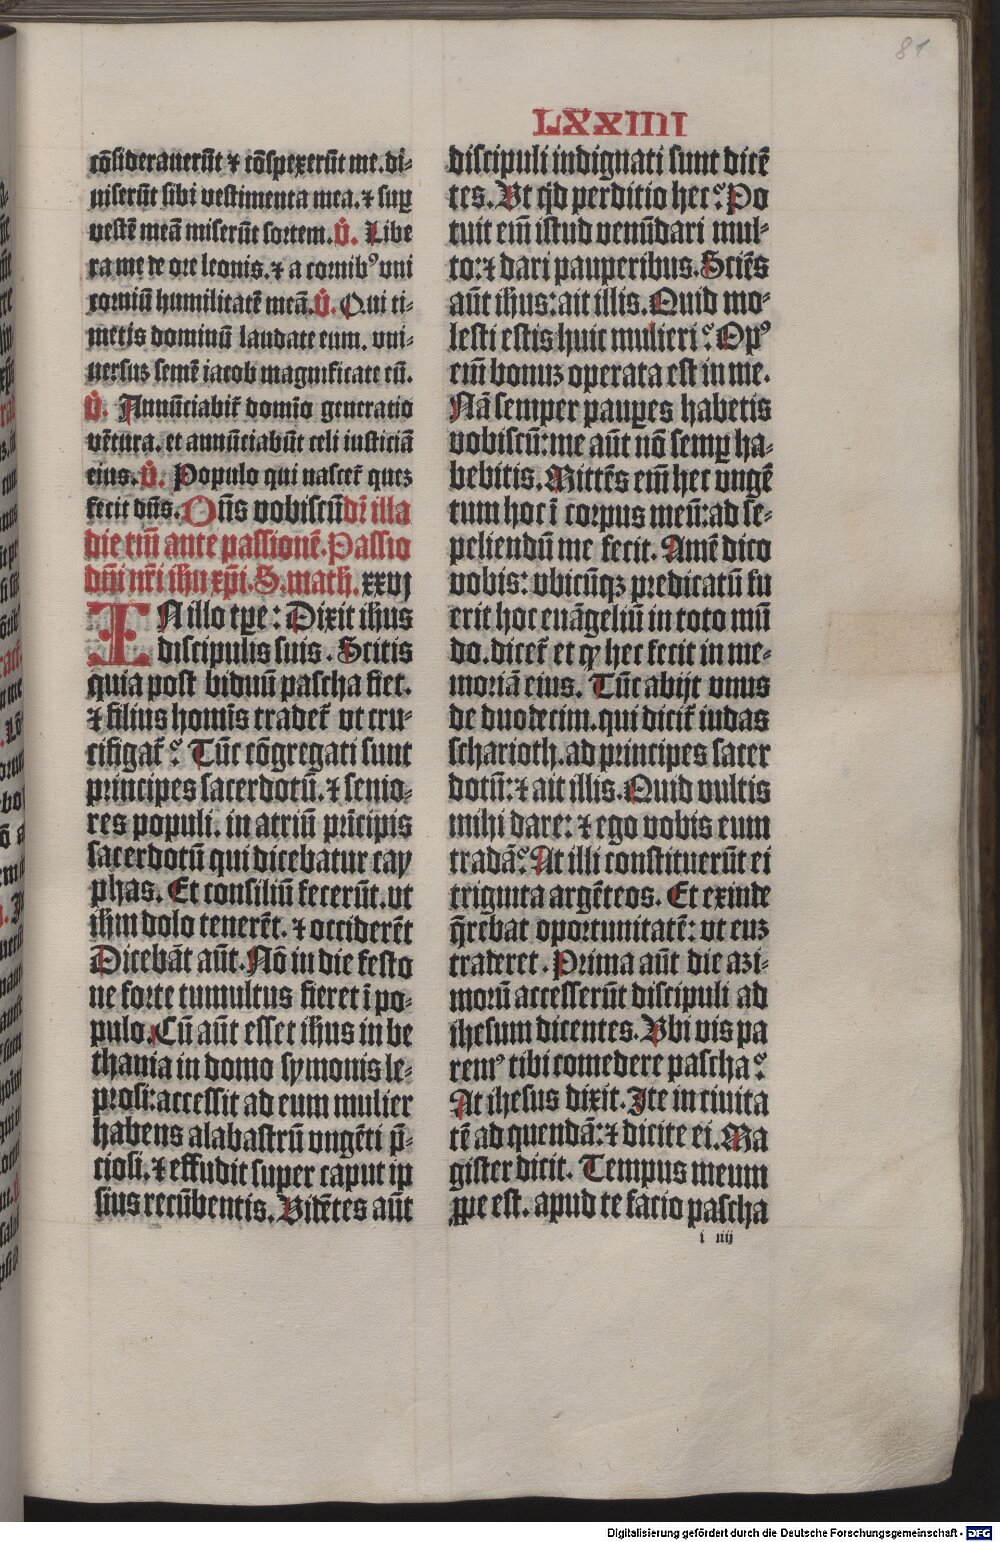 81
LXXIIII
cõsiderauerũt ⁊ cõspexerũt me. di-
uiserũt sibi vestimenta mea. ⁊ suꝑ
vestẽ meã miserũt sortem. V̊. Libe
ra me de ore leonis. ⁊ a cornibꝰ vni
corniũ humilitatẽ meã. V̊. Qui ti-
metis dominũ laudate eum. vni-
uersuz semẽ iacob magnificate eũ.
V̊. Annũciabit᷑ domĩo generatio
vẽtura. et annũciabũt celi iusticiã
eius. V̊. Populo qui nascet᷑ quez
fecit dñs. Oñs vobiscũ dr̃ illa
die etiã ante passionẽ. Passio
dñi nr̃i ihu xp̃i. S. math. xxvj
IN illo tꝑe: Dixit ihus
discipulis suis. Scitis
quia post biduũ pascha fiet.
⁊ filius homĩs tradet᷑ vt cru-
cifigat᷑? Tũc cõgregati sunt
principes sacerdotũ. ⁊ senio-
res populi. in atriũ prĩcipis
sacerdotũ qui dicebatur cay
phas. Et consiliũ fecerũt. vt
ihm dolo tenerẽt. ⁊ occiderẽt
Dicebãt aũt. Nõ in die festo
ne forte tumultus fieret ĩ po-
pulo. Cũ aũt esset ihus in be
thania in domo symonis le-
prosi: accessit ad eum mulier
habens alabastrũ vngẽti p̃-
ciosi. ⁊ effudit super caput ip
sius recũbentis. Vidẽtes aũt
discipuli indignati sunt dicẽ
tes. Vt qd perditio hec? Po
tuit eiñ istud venũdari mul-
to: ⁊ dari pauperibus. Sciẽs
aũt ihus: ait illis. Quid mo-
lesti estis huic mulieri? Opꝰ
eiñ bonuz operata est in me.
Nã semper pauꝑes habetis
vobiscũ: me aũt nõ semꝑ ha-
bebitis. Mittẽs eiñ hec vngẽ
tum hoc ĩ corpus meũ: ad se-
peliendũ me fecit. Amẽ dico
vobis: vbicũqꝫ predicatũ fu
erit hoc euãgeliũ in toto mũ
do. dicet᷑ et ꝙ hec fecit in me-
moriã eius. Tũc abijt vnus
de duodecim. qui dicit᷑ iudas
scharioth. ad principes sacer
dotũ: ⁊ ait illis. Quid vultis
mihi dare: ⁊ ego vobis eum
tradã? At illi constituerũt ei
triginta argẽteos. Et exinde
q̃rebat oportunitatẽ: vt euz
traderet. Prima aũt die azi-
morũ accesserũt discipuli ad
ihesum dicentes. Vbi vis pa
remꝰ tibi comedere pascha?
At ihesus dixit. Ite in ciuita
tẽ ad quendã: ⁊ dicite ei. Ma
gister dicit. Tempus meum
ꝓpe est. apud te facio pascha
i iiij
Digitalisierung gefördert durch die Deutsche Forschungsgemeinschaft - DFG